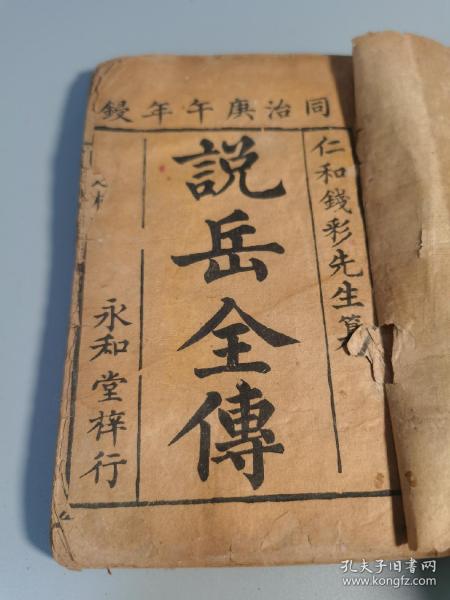 同治庚午年鋟
仁和錢彩先生篡
説岳全傳
永和堂梓行
孔夫子旧书网
www.kongfz.com